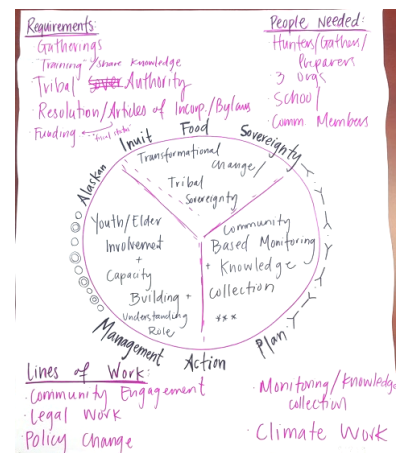 Requirements:
Gatherings
Training / share knowledge
Tribal Authority
· Resolution/Articles of Incorp./Bylaws
· Funding
People Needed:
Hunters/Gathers/
Preparers
· 3 orgs
· School
· Comm. Members
Alaskan Inuit Food Sovereignty
Management Action Plan
Transformational
Change/
Tribal
Sovereignty
Youth/Elder
Involvement
+
Capacity
Building +
Understanding
Role
Community
Based Monitoring
+ Knowledge
collection
***
Lines of Work:
· Community Engagement
· Legal Work
· Policy Change
· Monitoring/Knowledge
collection
· Climate Work